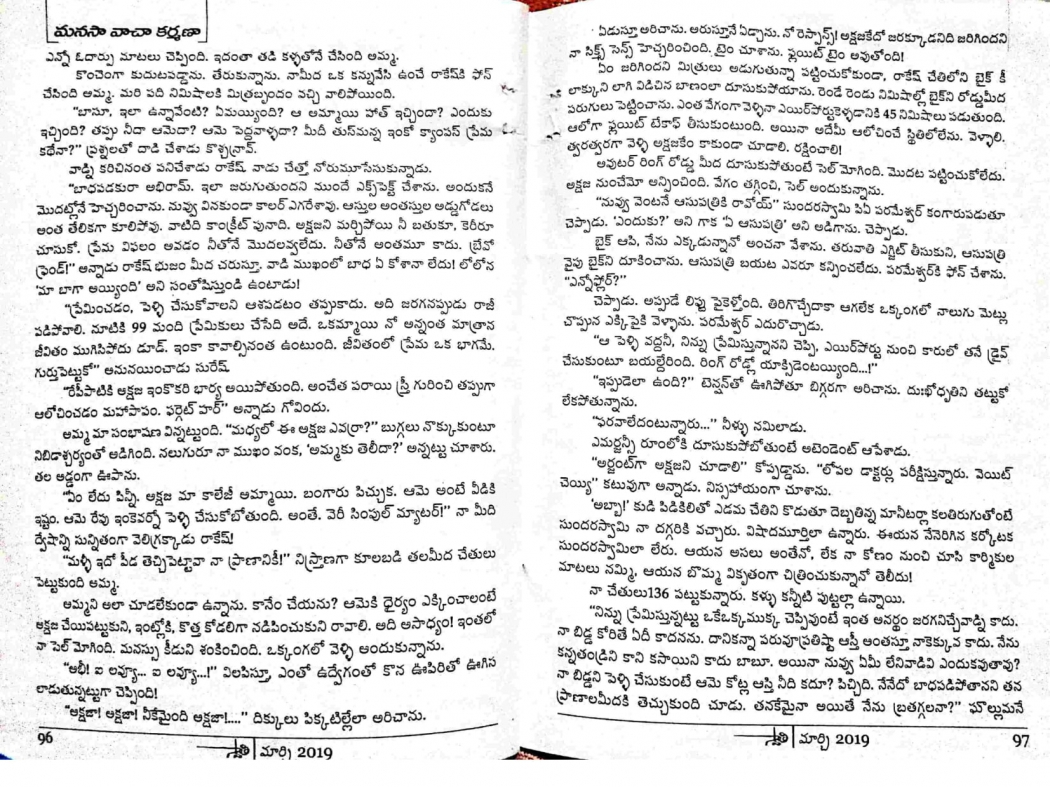 మనసా వాచా కర్మణా
ఎన్నో ఓదార్పు మాటలు చెప్పింది. ఇదంతా తడి కళ్ళతోనే చేసింది అమ్మ.
కొంచెంగా కుదుటపడ్డాను. తేరుకున్నాను. నామీద ఒక కన్నువేసి ఉంచే రాకేష్‌కి ఫోన్
చేసింది అమ్మ. మరి పది నిమిషాలకి మిత్రబృందం వచ్చి వాలిపోయింది.
"బాసూ, ఇలా ఉన్నావేంటి? ఏమయ్యింది? ఆ అమ్మాయి హాత్ ఇచ్చిందా? ఎందుకు
ఇచ్చింది? తప్పు నీదా ఆమెదా? ఆమె పెద్దవాళ్ళదా? మీదీ తుస్‌మన్న ఇంకో క్యాంపస్ ప్రేమ
కథేనా?" ప్రశ్నలతో దాడి చేశాడు కొశ్చన్రావ్.
వాడ్ని కరిచినంత పనిచేశాడు రాకేష్. నాడు చేత్తో నోరుమూసేసుకున్నాడు.
"బాధపడకురా అభిరామ్. ఇలా జరుగుతుందని ముందే ఎక్స్‌పెక్ట్ చేశాను. అందుకనే
మొదట్లోనే హెచ్చరించాను. నువ్వు వినకుండా కాలర్ ఎగరేశావు. ఆస్తుల అంతస్తుల అడ్డుగోడలు
అంత తేలికగా కూలిపోవు. వాటిది కాంక్రీట్ పునాది. అక్షజని మర్చిపోయి నీ బతుకూ, కెరీరూ
చూసుకో. ప్రేమ విఫలం అవడం నీతోనే మొదలవ్వలేదు. నీతోనే అంతమూ కాదు. బ్రేవో
ఫ్రెండ్!" అన్నాడు రాకేష్ భుజం మీద చరుస్తూ. వాడి ముఖంలో బాధ ఏ కోశానా లేదు! లోలోన
'మా బాగా అయ్యింది' అని సంతోషిస్తుండి ఉంటాడు!
"ప్రేమించడం, పెళ్ళి చేసుకోవాలని ఆశపడటం తప్పుకాదు. అది జరగనప్పుడు రాజీ
పడిపోవాలి. నూటికి 99 మంది ప్రేమికులు చేసేది అదే. ఒకమ్మాయి నో అన్నంత మాత్రాన
జీవితం ముగిసిపోదు డూడ్. ఇంకా కావాల్సినంత ఉంటుంది. జీవితంలో ప్రేమ ఒక భాగమే.
గుర్తుపెట్టుకో" అనునయించాడు సురేష్.
"రేపీపాటికి అక్షజ ఇంకొకరి భార్య అయిపోతుంది. అంచేత పరాయి స్త్రీ గురించి తప్పుగా
ఆలోచించడం మహాపాపం. ఫర్గెట్ హర్" అన్నాడు గోవిందు.
అమ్మ మా సంభాషణ విన్నట్టుంది. "మధ్యలో ఈ అక్షజ ఎవర్రా?" బుగ్గలు నొక్కుకుంటూ
నిబిడాశ్చర్యంతో అడిగింది. నలుగురూ నా ముఖం వంక, 'అమ్మకు తెలీదా?' అన్నట్టు చూశారు.
తల అడ్డంగా ఊపాను.
"ఏం లేదు పిన్నీ. అక్షజ మా కాలేజీ అమ్మాయి. బంగారు పిచ్చుక. ఆమె అంటే వీడికి
ఇష్టం. ఆమె రేపు ఇంకెవర్నో పెళ్ళి చేసుకోబోతుంది. అంతే. వెరీ సింపుల్ మ్యాటర్!" నా మీది
ద్వేషాన్ని సున్నితంగా వెలిగ్రక్కాడు రాకేష్!
"మళ్ళీ ఇదో పీడ తెచ్చిపెట్టావా నా ప్రాణానికీ!" నిస్త్రాణగా కూలబడి తలమీద చేతులు
పెట్టుకుంది అమ్మ.
అమ్మని అలా చూడలేకుండా ఉన్నాను. కానేం చేయను? ఆమెకి ధైర్యం ఎక్కించాలంటే
అక్షజ చేయిపట్టుకుని, ఇంట్లోకి, కొత్త కోడలిగా నడిపించుకుని రావాలి. అది అసాధ్యం! ఇంతలో
నా సెల్ మోగింది. మనస్సు కీడుని శంకించింది. ఒక్కంగలో వెళ్ళి అందుకున్నాను.
"అభీ! ఐ లవ్యూ... ఐ లవ్యూ...!" విలపిస్తూ, ఎంతో ఉద్వేగంతో కొన ఊపిరితో ఊగిస
లాడుతున్నట్టుగా చెప్పింది!
"అక్షజా! అక్షజా! నీకేమైంది అక్షజా!...." దిక్కులు పిక్కటిల్లేలా అరిచాను.
96
స్వాతి | మార్చి 2019
ఏడుస్తూ అరిచాను. అరుస్తూనే ఏడ్చాను. నో రెస్పాన్స్! అక్షజకేదో జరక్కూడనిది జరిగిందని
నా సిక్స్త్ సెన్స్ హెచ్చరించింది. టైం చూశాను. ఫ్లయిట్ టైం అవుతోంది!
ఏం జరిగిందని మిత్రులు అడుగుతున్నా పట్టించుకోకుండా, రాకేష్ చేతిలోని బైక్ కీ
లాక్కుని లాగి విడిచిన బాణంలా దూసుకుపోయాను. రెండే రెండు నిమిషాల్లో బైక్‌ని రోడ్డుమీద
పరుగులు పెట్టించాను. ఎంత వేగంగా వెళ్ళినా ఎయిర్‌పోర్టుకెళ్ళడానికి 45 నిమిషాలు పడుతుంది.
ఆలోగా ఫ్లయిట్ టేకాఫ్ తీసుకుంటుంది. అయినా అదేమీ ఆలోచించే స్థితిలోలేను. వెళ్ళాలి.
త్వరత్వరగా వెళ్ళి అక్షజకేం కాకుండా చూడాలి. రక్షించాలి!
అవుటర్ రింగ్ రోడ్డు మీద దూసుకుపోతుంటే సెల్ మోగింది. మొదట పట్టించుకోలేదు.
అక్షజ నుంచేమో అన్పించింది. వేగం తగ్గించి, సెల్ అందుకున్నాను.
"నువ్వు వెంటనే ఆసుపత్రికి రావోయ్" సుందరస్వామి పిఏ పరమేశ్వర్ కంగారుపడుతూ
చెప్పాడు. 'ఎందుకు?' అని గాక 'ఏ ఆసుపత్రి' అని అడిగాను. చెప్పాడు.
బైక్ ఆపి, నేను ఎక్కడున్నానో అంచనా వేశాను. తరువాతి ఎగ్జిట్ తీసుకుని, ఆసుపత్రి
వైపు బైక్‌ని దూకించాను. ఆసుపత్రి బయట ఎవరూ కన్పించలేదు. పరమేశ్వర్‌కి ఫోన్ చేశాను.
"ఎన్నోఫ్లోర్?"
చెప్పాడు. అప్పుడే లిఫ్టు పైకెళ్తోంది. తిరిగొచ్చేదాకా ఆగలేక ఒక్కంగలో నాలుగు మెట్లు
చొప్పున ఎక్కిపైకి వెళ్ళాను. పరమేశ్వర్ ఎదురొచ్చాడు.
"ఆ పెళ్ళి వద్దనీ, నిన్ను ప్రేమిస్తున్నానని చెప్పి, ఎయిర్‌పోర్టు నుంచి కారులో తనే డ్రైవ్
చేసుకుంటూ బయల్దేరింది. రింగ్ రోడ్లో యాక్సిడెంటయ్యింది...!"
"ఇప్పుడెలా ఉంది?" టెన్షన్‌తో ఊగిపోతూ బిగ్గరగా అరిచాను. దుఃఖోధృతిని తట్టుకో
లేకపోతున్నాను.
"ఫరవాలేదంటున్నారు..." నీళ్ళు నమిలాడు.
ఎమర్జన్సీ రూంలోకి దూసుకుపోబోతుంటే అటెండెంట్ ఆపేశాడు.
"అర్జంట్‌గా అక్షజని చూడాలి" కోప్పడ్డాను. "లోపల డాక్టర్లు పరీక్షిస్తున్నారు. వెయిట్
చెయ్యి" కటువుగా అన్నాడు. నిస్సహాయంగా చూశాను.
'అబ్బా!' కుడి పిడికిలితో ఎడమ చేతిని కొడుతూ దెబ్బతిన్న మానీటర్లా కలతిరుగుతోంటే
సుందరస్వామి నా దగ్గరికి వచ్చారు. విషాదమూర్తిలా ఉన్నారు. ఈయన నేనెరిగిన కర్కోటక
సుందరస్వామిలా లేరు. ఆయన అసలు అంతేనో, లేక నా కోణం నుంచి చూసి కార్మికుల
మాటలు నమ్మి, ఆయన బొమ్మ వికృతంగా చిత్రించుకున్నానో తెలీదు!
నా చేతులు136 పట్టుకున్నారు. కళ్ళు కన్నీటి పుట్టల్లా ఉన్నాయి.
"నిన్ను ప్రేమిస్తున్నట్టు ఒకేఒక్కముక్క చెప్పివుంటే ఇంత అనర్థం జరగనిచ్చేవాడ్ని కాదు.
నా బిడ్డ కోరితే ఏదీ కాదనను. దానికన్నా పరువూప్రతిష్టా ఆస్తీ అంతస్తూ నాకెక్కువ కాదు. నేను
కన్నతండ్రిని కాని కసాయిని కాదు బాబూ. అయినా నువ్వు ఏమీ లేనివాడివి ఎందుకవుతావు?
నా బిడ్డని పెళ్ళి చేసుకుంటే ఆమె కోట్ల ఆస్తి నీది కదూ? పిచ్చిది. నేనేదో బాధపడిపోతానని తన
ప్రాణాలమీదకి తెచ్చుకుంది చూడు. తనకేమైనా అయితే నేను బ్రతగ్గలనా?" ఘొల్లుమనే
స్వాతి | మార్చి 2019
97